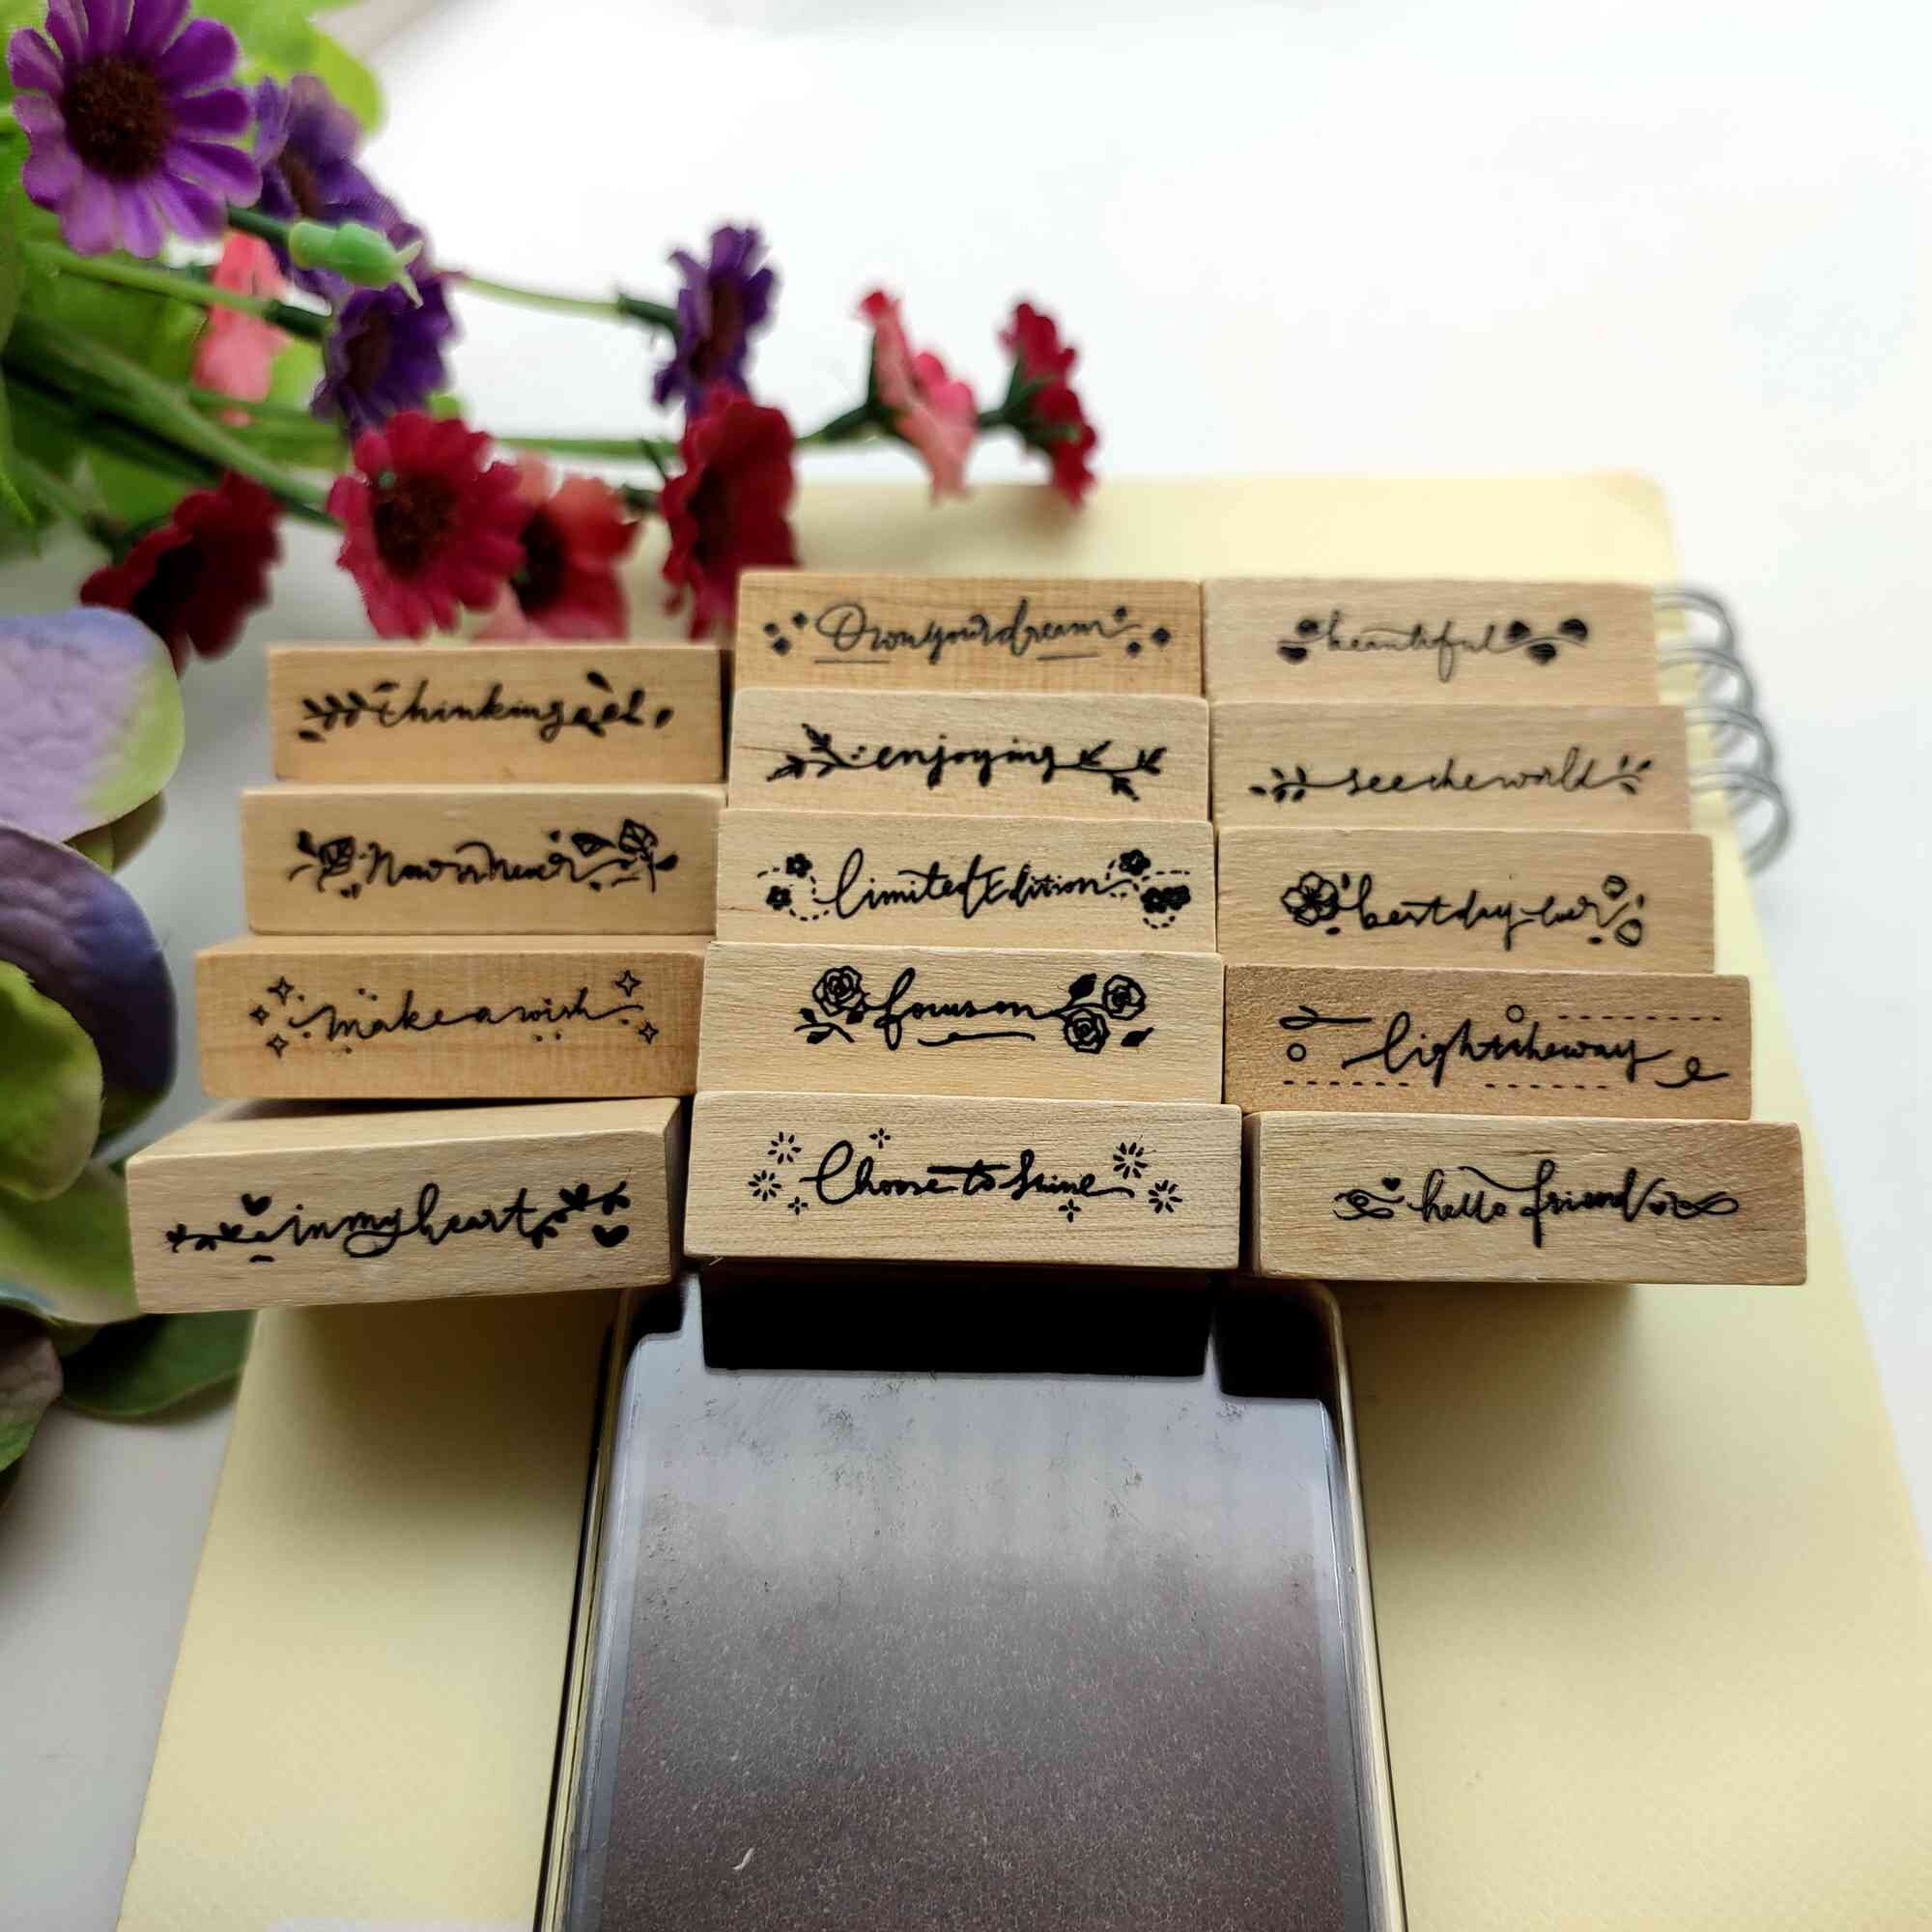 thinking
Now or never
make a wish
in my heart
Own your dream
enjoying
limited Edition
focus on
Choose to shine
beautiful
see the world
best day ever
light the way
hello friend